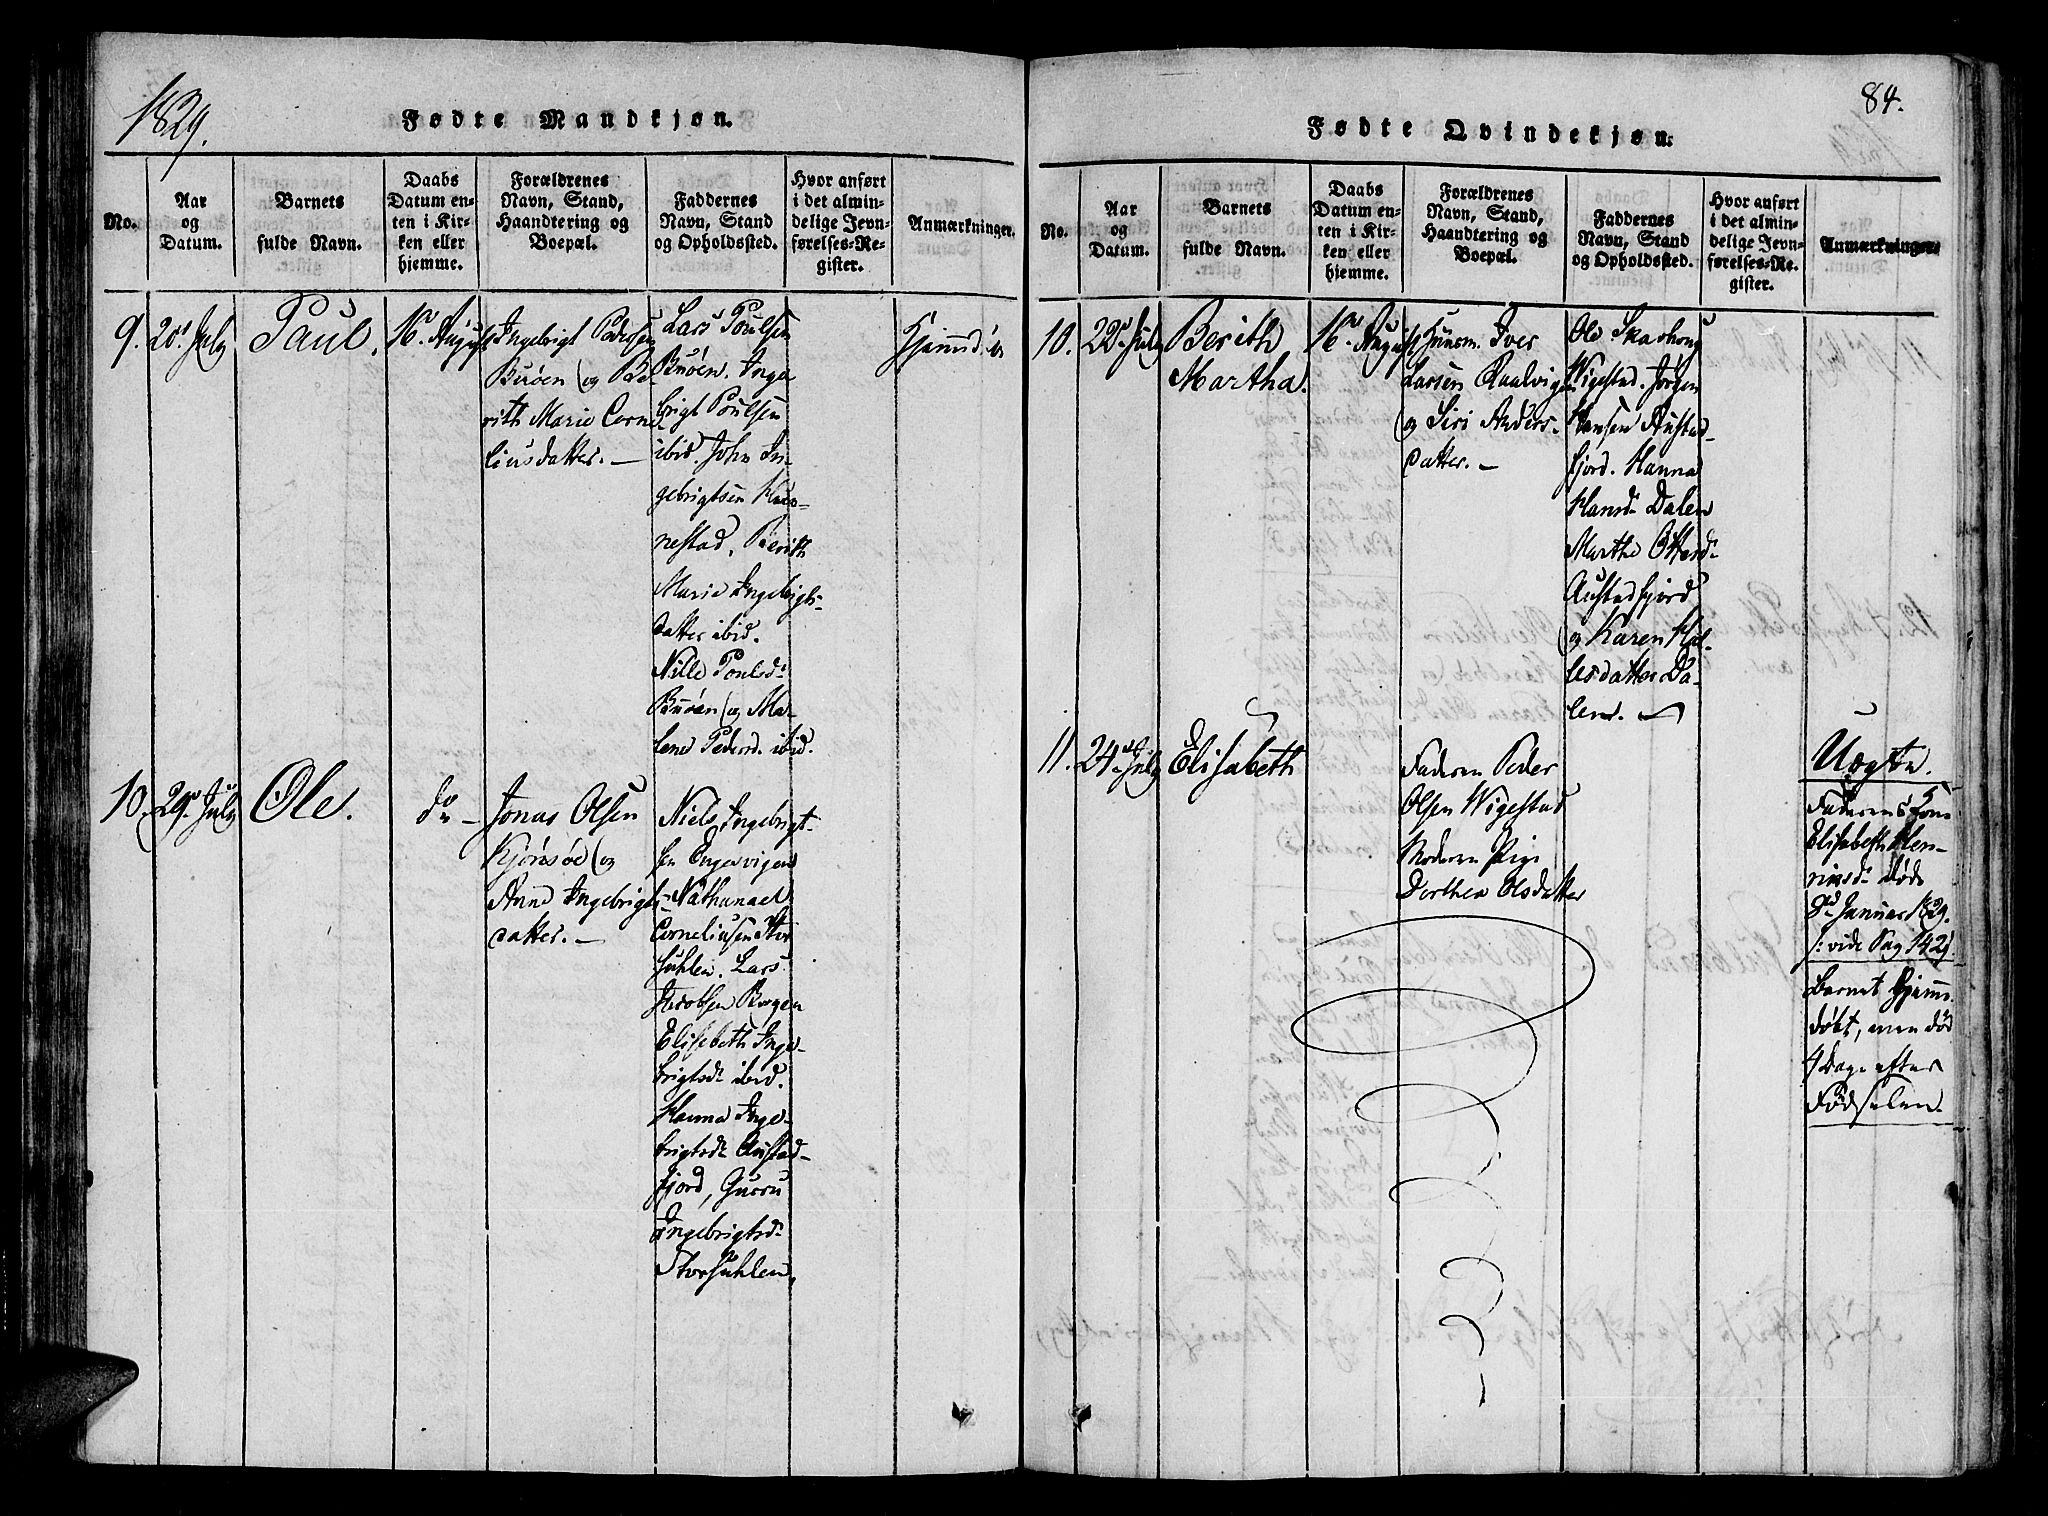 1829.
Fødte Mandkjøn.
No.
Aar
og
Datum.
Barnets
fulde Navn.
Daabs
Datum en-
ten i Kir-
ken eller
hjemme.
Forældrenes
Navn, Stand,
Haandtering og
Boepæl.
Faddernes
Navn, Stand
og Opholdssted.
Hvor anført
i det almin-
delige Jevn-
førelses-Re-
gister.
Anmærkninger.
9.
20de July
Paul.
16de August
Ingebrigt Pedersen
Buøen og Be-
rith Marie Corne-
liusdatter.
Lars Poulsen
Buøen. Inge
brigt Poulsen
ibid. John In-
gebrigtsen
nestad, Berith
Marie Ingebrigts-
datter ibid.
Nille Poulsd.
Buøen og Ma-
lene Pedersd. ibid.
Hjemmed.
10.
29de July
Ole.
do
Jonas Olsen
Kjørsøe og
Anne Ingebrigts-
datter.
Niels Ingebrigt-
sen Engevigen
Nathanael
Corneliusen Stor
suhlen. Lars
Jacobsen Bergen
Elisabeth Inge-
brigtsdr ibid.
Hanna Inge-
brigtsdr Austad-
fjord, Gurru
Ingebrigtsdr
Storsuhlen.
84.
Fødte Qvindekjøn.
No.
Aar
og
Datum.
Barnets
fulde Navn.
Daabs
Datum en-
ten i Kir-
ken eller
hjemme.
Forældrenes
Navn, Stand,
Haandtering og
Boepæl.
Faddernes
Navn, Stand
og Opholdssted.
Hvor anført
i det almin-
delige Jevn-
førelses-Re-
gister.
Anmærkninger
10.
22de July
Berith
Martha.
16de August
Huusm. Iver
Larsen Aalvigen
og Siri Anders-
datter.
Ole Skarhoug
Wigestad. Jørgen
Hansen Austad-
fjord. Hanna
Hansdr Dalen
Marthe Ottersdr
Austadfjord
og Karen
lesdatter Da-
lend.
11.
24de July
Elisabeth
Faderen Peder
Olsen Wigestad
Moderen Pige
Dorthea Olsdatter
Uægte.
Faderens Kone
Elisabeth Hen-
riksdr døde
Januar 1829.
/: vide Pag 142 :/
Barnet hjemme-
døbt, men død
4 Dage efter
Fødselen.